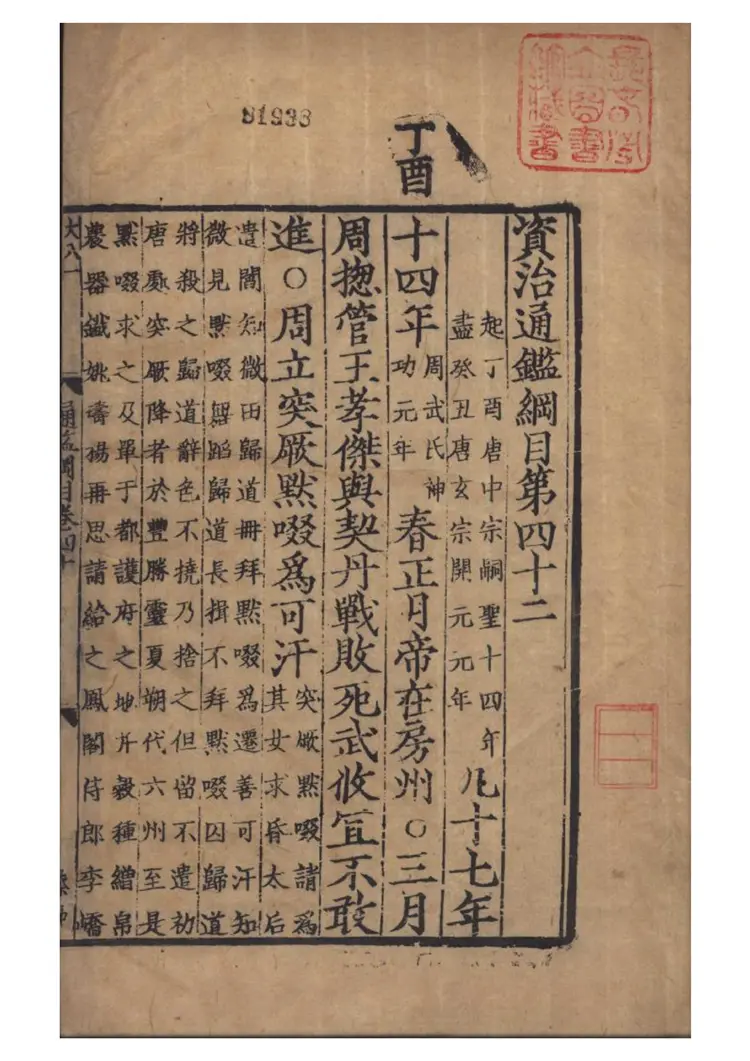 丁酉
資治通鑑綱目第四十二
起丁酉唐中宗嗣聖十四年
盡癸丑唐玄宗開元元年
凡十七年
十四年
周武氏神
功元年
春正月帝在房州○三月
周揔管王孝傑與契丹戰敗死武攸宜不敢
進○周立突厥默啜爲可汗
突厥默啜請爲
其女求昏太后
遣閻知微田歸道冊拜默啜爲遷善可汗知
微見默啜舞蹈歸道長揖不拜默啜囚歸道
將殺之歸道辭色不撓乃捨之但留不遣初
唐處突厥降者於豐勝靈夏朔代六州至是
默啜求之及單于都護府之地并穀種繒帛
農器鐵姚璹楊再思請給之鳳閣侍郎李嶠
通鑑綱目卷四十